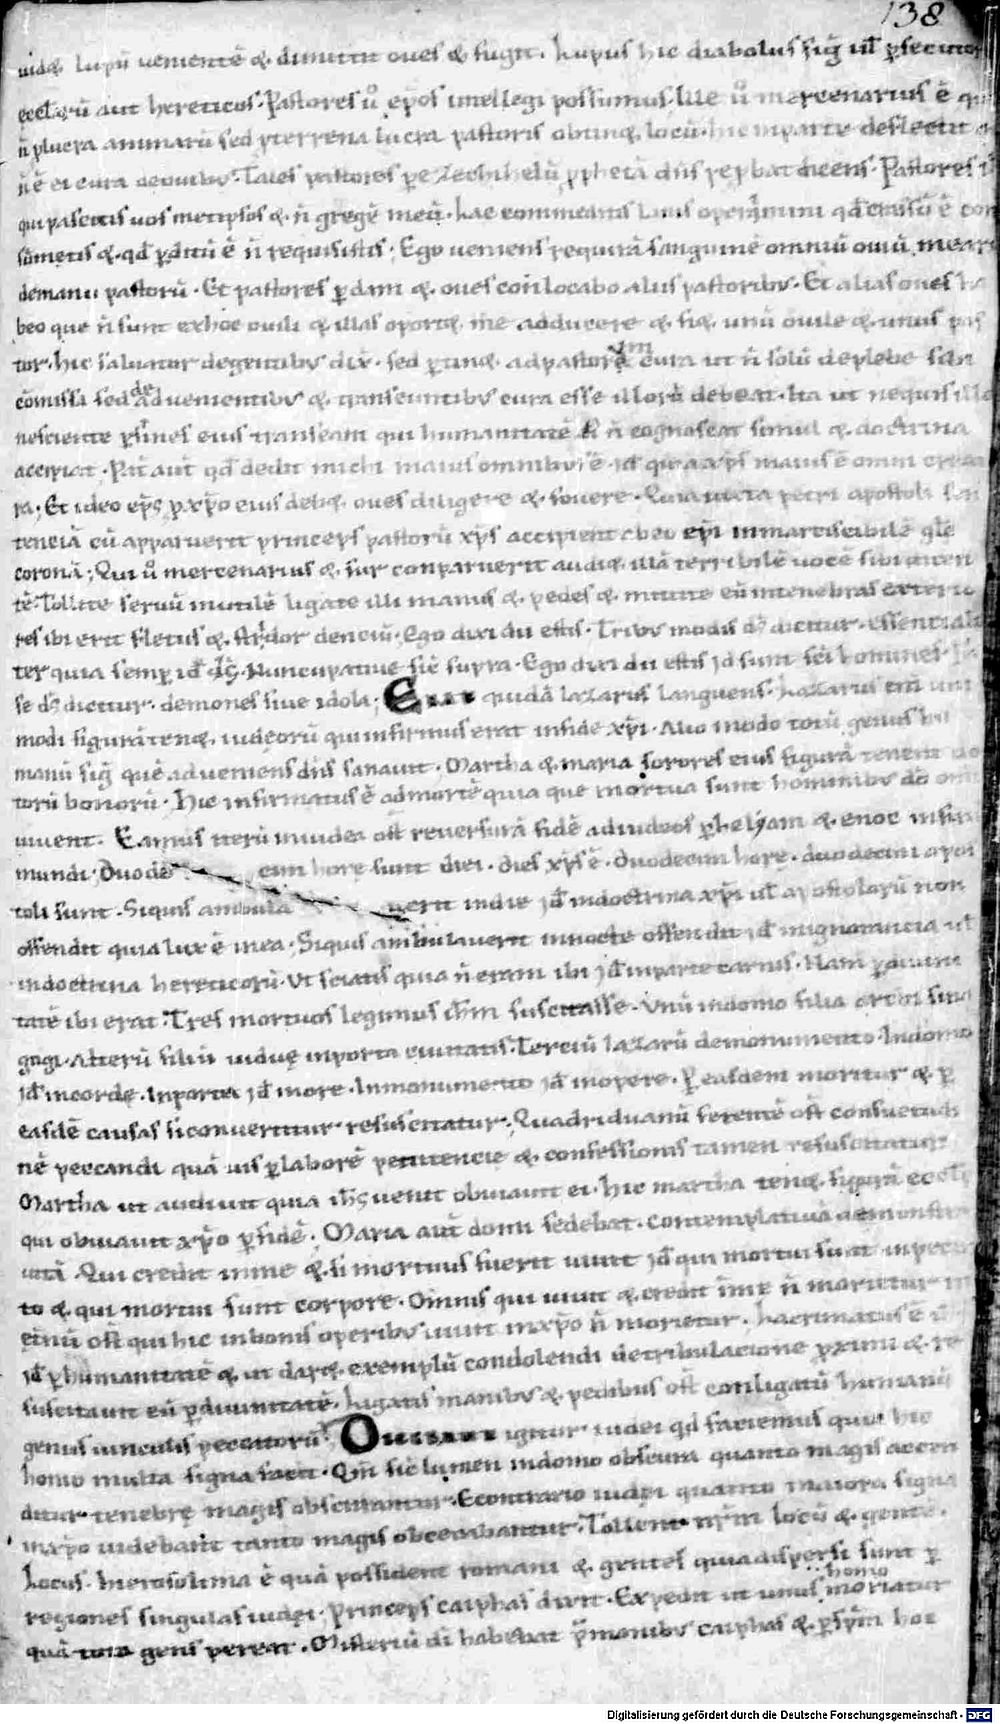 138
uidæ lupū uenientē & dimittit oues & fugit. Lupus hic diabolus sig̅ ul̅ psecutor
eccl̅arū aut hereticos. Pastores ů ep̅os intellegi possumus. Ille ů mercenarius ē qui
n̅ p lucra animarū sed p terrena lucra pastoris obtin& locū. hic in parte deflectit
n̅ ē ei cura de ouibus. Tales pastores p ezechihelū pphetā dn̅s reprobat dicens. Pastores
qui pascitis uos metipsos & n̅ gregē meū. Lac commeditis lanis operimini qd̅ crassū ē con
sūmetis & qd̅ pditū ē n̅ requisistis; Ego ueniens requirā sanguinē omniū ouiū mearū
de manu pastorū. Et pastores pdam & oues conlocabo aliis pastoribus. Et alias oues ha
beo que n̅ sunt ex hoc ouili & illas oport& me adducere & fi& unū ouile & unus pas
tor. hic saluator de gentibus dix̅. sed ptin& ad pastorem cura ut n̅ solū de plebe
cōmissa sed de aduenientibus & transeuntibus cura esse illorū debeat. Ita ut nequis illo
nesciente p fines eius transeant qui humanitatē ei n̅ cognoscat simul & doctrina
accipiat. Pat̅ aut̅ qd̅ dedit michi maius omnibus ē. id̅ quia xp̅s maius ē omni creatu
ra; Et ideo ep̅s p xp̅o eius deb& oues diligere & fouere. Quia iuxta petri apostoli sen
tenciā cū apparuerit princeps pastorū xp̅s accipient ab eo ep̅i inmarciscibilē gl̅e
coronā; Qui ů mercenarius & fur conparuerit audi& illā terribilē uocē sibi dicen
tē. Tollite seruū inutilē ligate illi manus & pedes & mittite eū in tenebras exterio
res ibi erit fletus & stridor denciū. Ego dixi dii estis. Tribus modis ds̅ dicitur. Essenciali
ter quia semp id̅ Nuncupatiue sic̅ supra. Ego dixi dii estis id̅ sunt sc̅i homines.
se ds̅ dicitur. demones siue idola; Erat quidā lazarus languens. Lazarus eni̅ uni
modi figurā ten& iudeorū qui infirmus erat in fide xp̅i. Alio modo totū genus hu
manū sig̅ quē adueniens dn̅s sanauit. Martha & maria sorores eius figurā tenent do
torū bonorū. Hic infirmatus ē ad mortē quia que mortua sunt hominibus do̅ om̅
uiuent. Eamus iterū in iudea ost̅ reuersurā fidē ad iudeos p helyam & enoc in fine
mundi; Duode cim hore sunt diei. dies xp̅s ē. duodecim hore. duodecim apos
toli sunt. Siquis ambula uerit in die id̅ in doctrina xp̅i ul̅ apostolorū non
offendit quia lux ē mea. Siquis ambulauerit in nocte offendit id̅ in ignorancia ul̅
in doctrina hereticorū. Ut sciatis quia n̅ eram ibi id̅ in parte carnis. Nam p diuini
tatē ibi erat. Tres mortuos legimus ih̅m suscitasse. Unū in domo filia archi sina
gogi. Alterū filiū uidue in porta ciuitatis. Terciū lazarū de monumento. In domo
id̅ in corde. In porta id̅ in ore. In monumento id̅ in opere. P easdem moritur & p
easdē causas si conuertitur resuscitatur. Quadriduanū ferentē ost̅ consuetudi
nē peccandi quā uis p laborē penitencie & confessionis tamen resuscitatur
Martha ut audiuit quia ih̅s uenit obuiauit ei. hic martha ten& figurā eccl̅e
qui obuiauit xp̅o p fidē. Maria aut̅ domi sedebat. contemplatiuā demonstrat
uitā. Qui credit in me & si mortuus fuerit uiuit id̅ qui mortui sunt in pecca
to & qui mortui sunt corpore. Omnis qui uiuit & credit in me n̅ morietur in
et̅nū ost̅ qui hic in bonis operibus uiuit in xp̅o n̅ morietur. Lacrimatus ē ih̅s
id̅ p humanitatē & ut dar& exemplū condolendi de tribulacione pximi & re
suscitauit eū p diuinitatē. Ligatis manibus & pedibus ost̅ conligatū humanū
genus uinculis peccatorū. Dixerunt igitur iudei qd̅ faciemus quia hic
homo multa signa facit. Qm̅ sic̅ lumen in domo obscura quanto magis accen
ditur tenebre magis obscurantur. E contrario iudei quanto maiora signa
in xp̅o uidebant tanto magis obcecabantur. Tollent nr̅m locū & gentē.
Locus. hierosolima ē quā possident romani & gentes quia dispersi sunt p
regiones singulas iudei. Princeps caiphas dixit. Expedit ut unus homo moriatur
quā tota gens pereat. Misteriū di̅ habebat p manibus caiphas & p sp̅m hoc
Digitalisierung gefördert durch die Deutsche Forschungsgemeinschaft - DFG